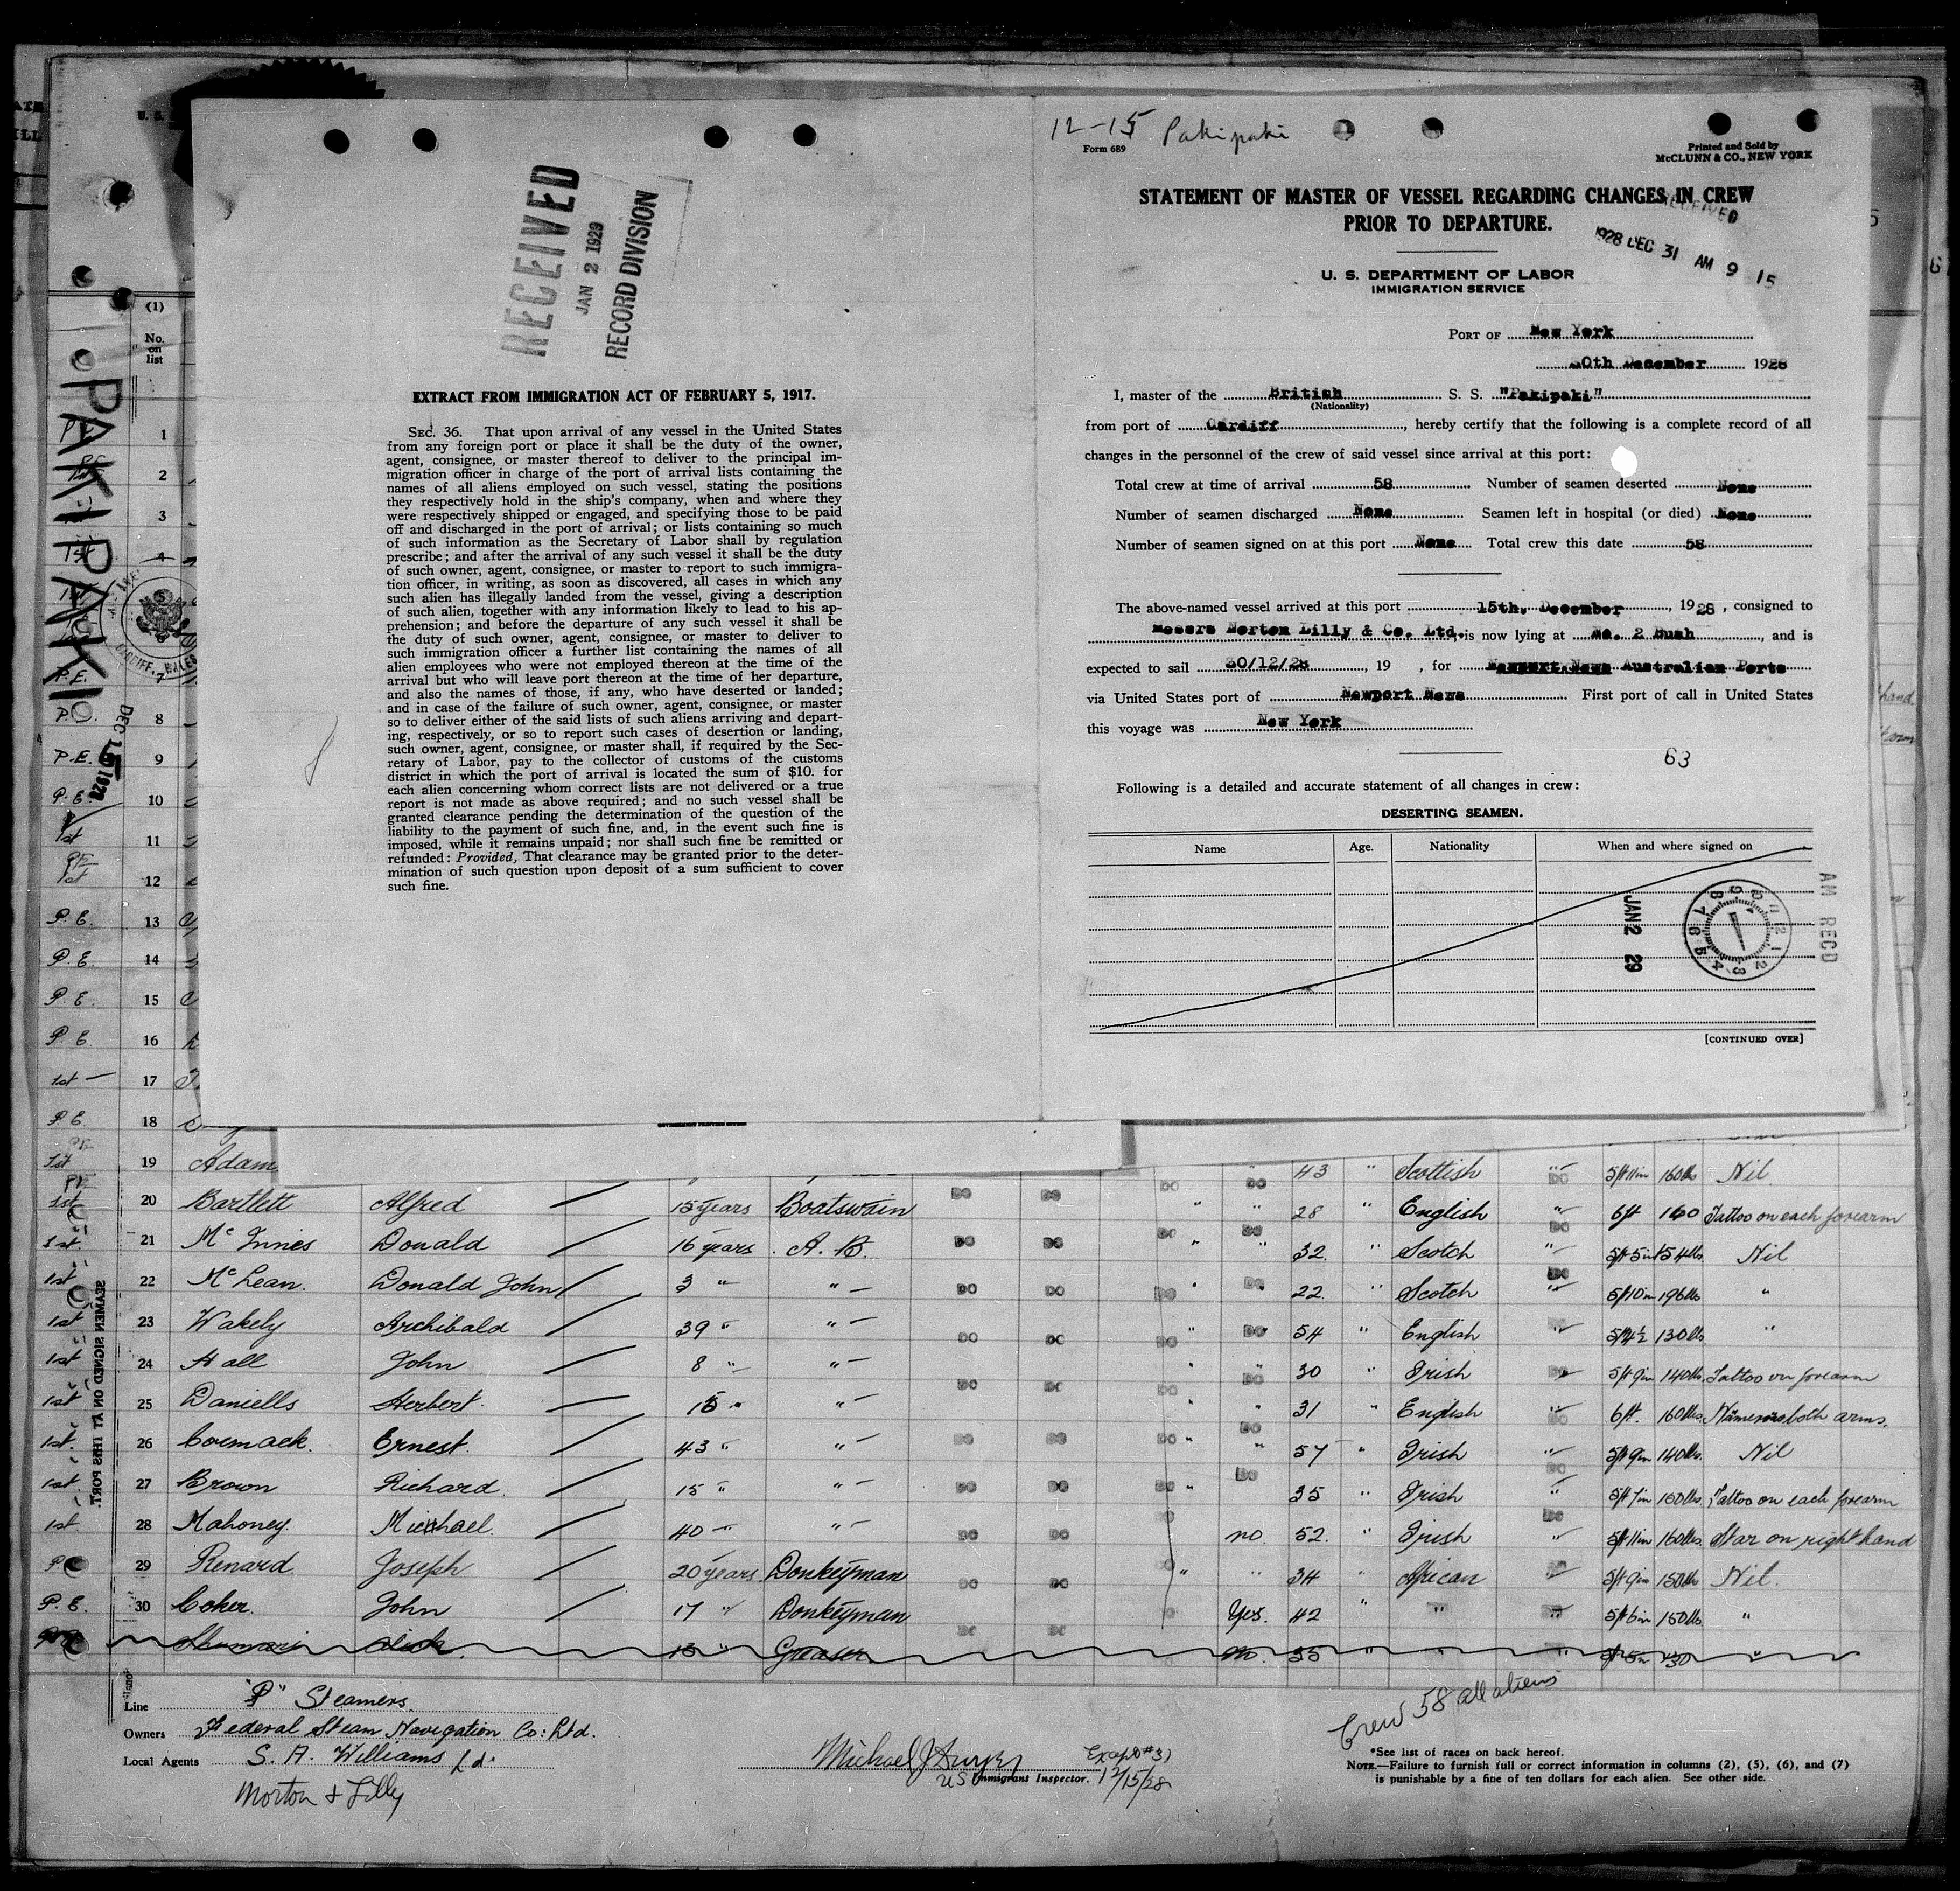 RECEIVED
JAN 2 1929
RECORD DIVISION
EXTRACT FROM IMMIGRATION ACT OF FEBRUARY 5, 1917.
SEC. 36. That upon arrival of any vessel in the United States
from any foreign port or place it shall be the duty of the owner,
agent, consignee, or master thereof to deliver to the principal im-
migration officer in charge of the port of arrival lists containing the
names of all aliens employed on such vessel, stating the positions
they respectively hold in the ship's company, when and where they
were respectively shipped or engaged, and specifying those to be paid
off and discharged in the port of arrival; or lists containing so much
of such information as the Secretary of Labor shall by regulation
prescribe; and after the arrival of any such vessel it shall be the duty
of such owner, agent, consignee, or master to report to such immigra-
tion officer, in writing, as soon as discovered, all cases in which any
such alien has illegally landed from the vessel, giving a description
of such alien, together with any information likely to lead to his ap-
prehension; and before the departure of any such vessel it shall be
the duty of such owner, agent, consignee, or master to deliver to
such immigration officer a further list containing the names of all
alien employees who were not employed thereon at the time of the
arrival but who will leave port thereon at the time of her departure,
and also the names of those, if any, who have deserted or landed;
and in case of the failure of such owner, agent, consignee, or master
so to deliver either of the said lists of such aliens arriving and depart-
ing, respectively, or so to report such cases of desertion or landing,
such owner, agent, consignee, or master shall, if required by the Sec-
retary of Labor, pay to the collector of customs of the customs
district in which the port of arrival is located the sum of $10. for
each alien concerning whom correct lists are not delivered or a true
report is not made as above required; and no such vessel shall be
granted clearance pending the determination of the question of the
liability to the payment of such fine, and, in the event such fine is
imposed, while it remains unpaid; nor shall such fine be remitted or
refunded: Provided, That clearance may be granted prior to the deter-
mination of such question upon deposit of a sum sufficient to cover
such fine.
12-15 Pakipaki
Form 689
Printed and Sold by
McCLUNN & CO., NEW YORK
STATEMENT OF MASTER OF VESSEL REGARDING CHANGES IN CREW
PRIOR TO DEPARTURE.
RECEIVED
1928 DEC 31 AM 9 15
U. S. DEPARTMENT OF LABOR
IMMIGRATION SERVICE
PORT OF New York
30th December 1928
I, master of the British S. S. "Pakipaki"
(Nationality)
from port of Cardiff, hereby certify that the following is a complete record of all
changes in the personnel of the crew of said vessel since arrival at this port:
Total crew at time of arrival 58 Number of seamen deserted None
Number of seamen discharged None Seamen left in hospital (or died) None
Number of seamen signed on at this port None Total crew this date 58
The above-named vessel arrived at this port 15th. December, 1928, consigned to
Messrs Norton Lilly & Co. Ltd. is now lying at No. 2 Bush, and is
expected to sail 30/12/28, 19 , for Newport News Australian Ports
via United States port of Newport News First port of call in United States
this voyage was New York
63
Following is a detailed and accurate statement of all changes in crew:
DESERTING SEAMEN.
Name Age. Nationality When and where signed on
JAN 2 29
AM RECD
[CONTINUED OVER]
PAKIPAKI
DEC 15 1928
U. S.
CARDIFF, WALES
(1)
No. on list
1
2
3
1st 4
P.E. 7
P.E. 8
P.E. 9
P.E. 10
1st 11
P.E. 1st 12
P.E. 13
P.E. 14
P.E. 15
P.E. 16
1st 17
P.E. 18
1st 19 Adam 43 " Scottish " 5ft 11in 160lbs Nil.
1st 20 Bartlett Alfred 15 years Boatswain DO DO DO " " 28 " English " 6ft 160 Tattoo on each forearm
1st 21 McInnes Donald 16 years A. B. DO DO DO " " 32 " Scotch " 5ft 5in 154lbs. Nil
1st 22 McLean. Donald John 3 " " DO DO DO " " 22 " Scotch " 5ft 10in 196lbs "
1st 23 Wakely Archibald 39 " " DO DO DO " DO 54 " English " 5ft 4½ 130lbs "
1st 24 Hall John 8 " " DO DO " " 30 " Irish " 5ft 9in 140lbs. Tattoo on forearm
1st 25 Daniells Herbert 15 " " DO DO DO " " 31 " English " 6ft. 160lbs. both arms.
1st 26 Cormack. Ernest. 43 " " DO DO DO " " 57 " Irish " 5ft 9in 140lbs. Nil
1st 27 Brown Richard 15 " " DO DO DO " DO 35 " Irish " 5ft 7in 150lbs. Tattoo on each forearm
1st 28 Mahoney. Michael. 40 " " DO DO no. 52. " Irish " 5ft 11in 160lbs. Star on right hand
29 Renard Joseph 20 years Donkeyman DO DO " " 34 " African " 5ft 9in 150lbs Nil.
P.E. 30 Coker. John 17 " Donkeyman Yes. 42 " " " 5ft 6in 150lbs "
13 " Greaser DO no. 35 " " " 5ft 5in 130 "
SEAMEN SIGNED ON AT THIS PORT.
Line "P" Steamers.
Owners Federal Steam Navigation Co: Ltd.
Local Agents S. A. Williams Ld.
Norton & Lilly
Crew 58 all aliens
Except #31
12/15/28
US Immigrant Inspector.
*See list of races on back hereof.
NOTE.—Failure to furnish full or correct information in columns (2), (5), (6), and (7)
is punishable by a fine of ten dollars for each alien. See other side.